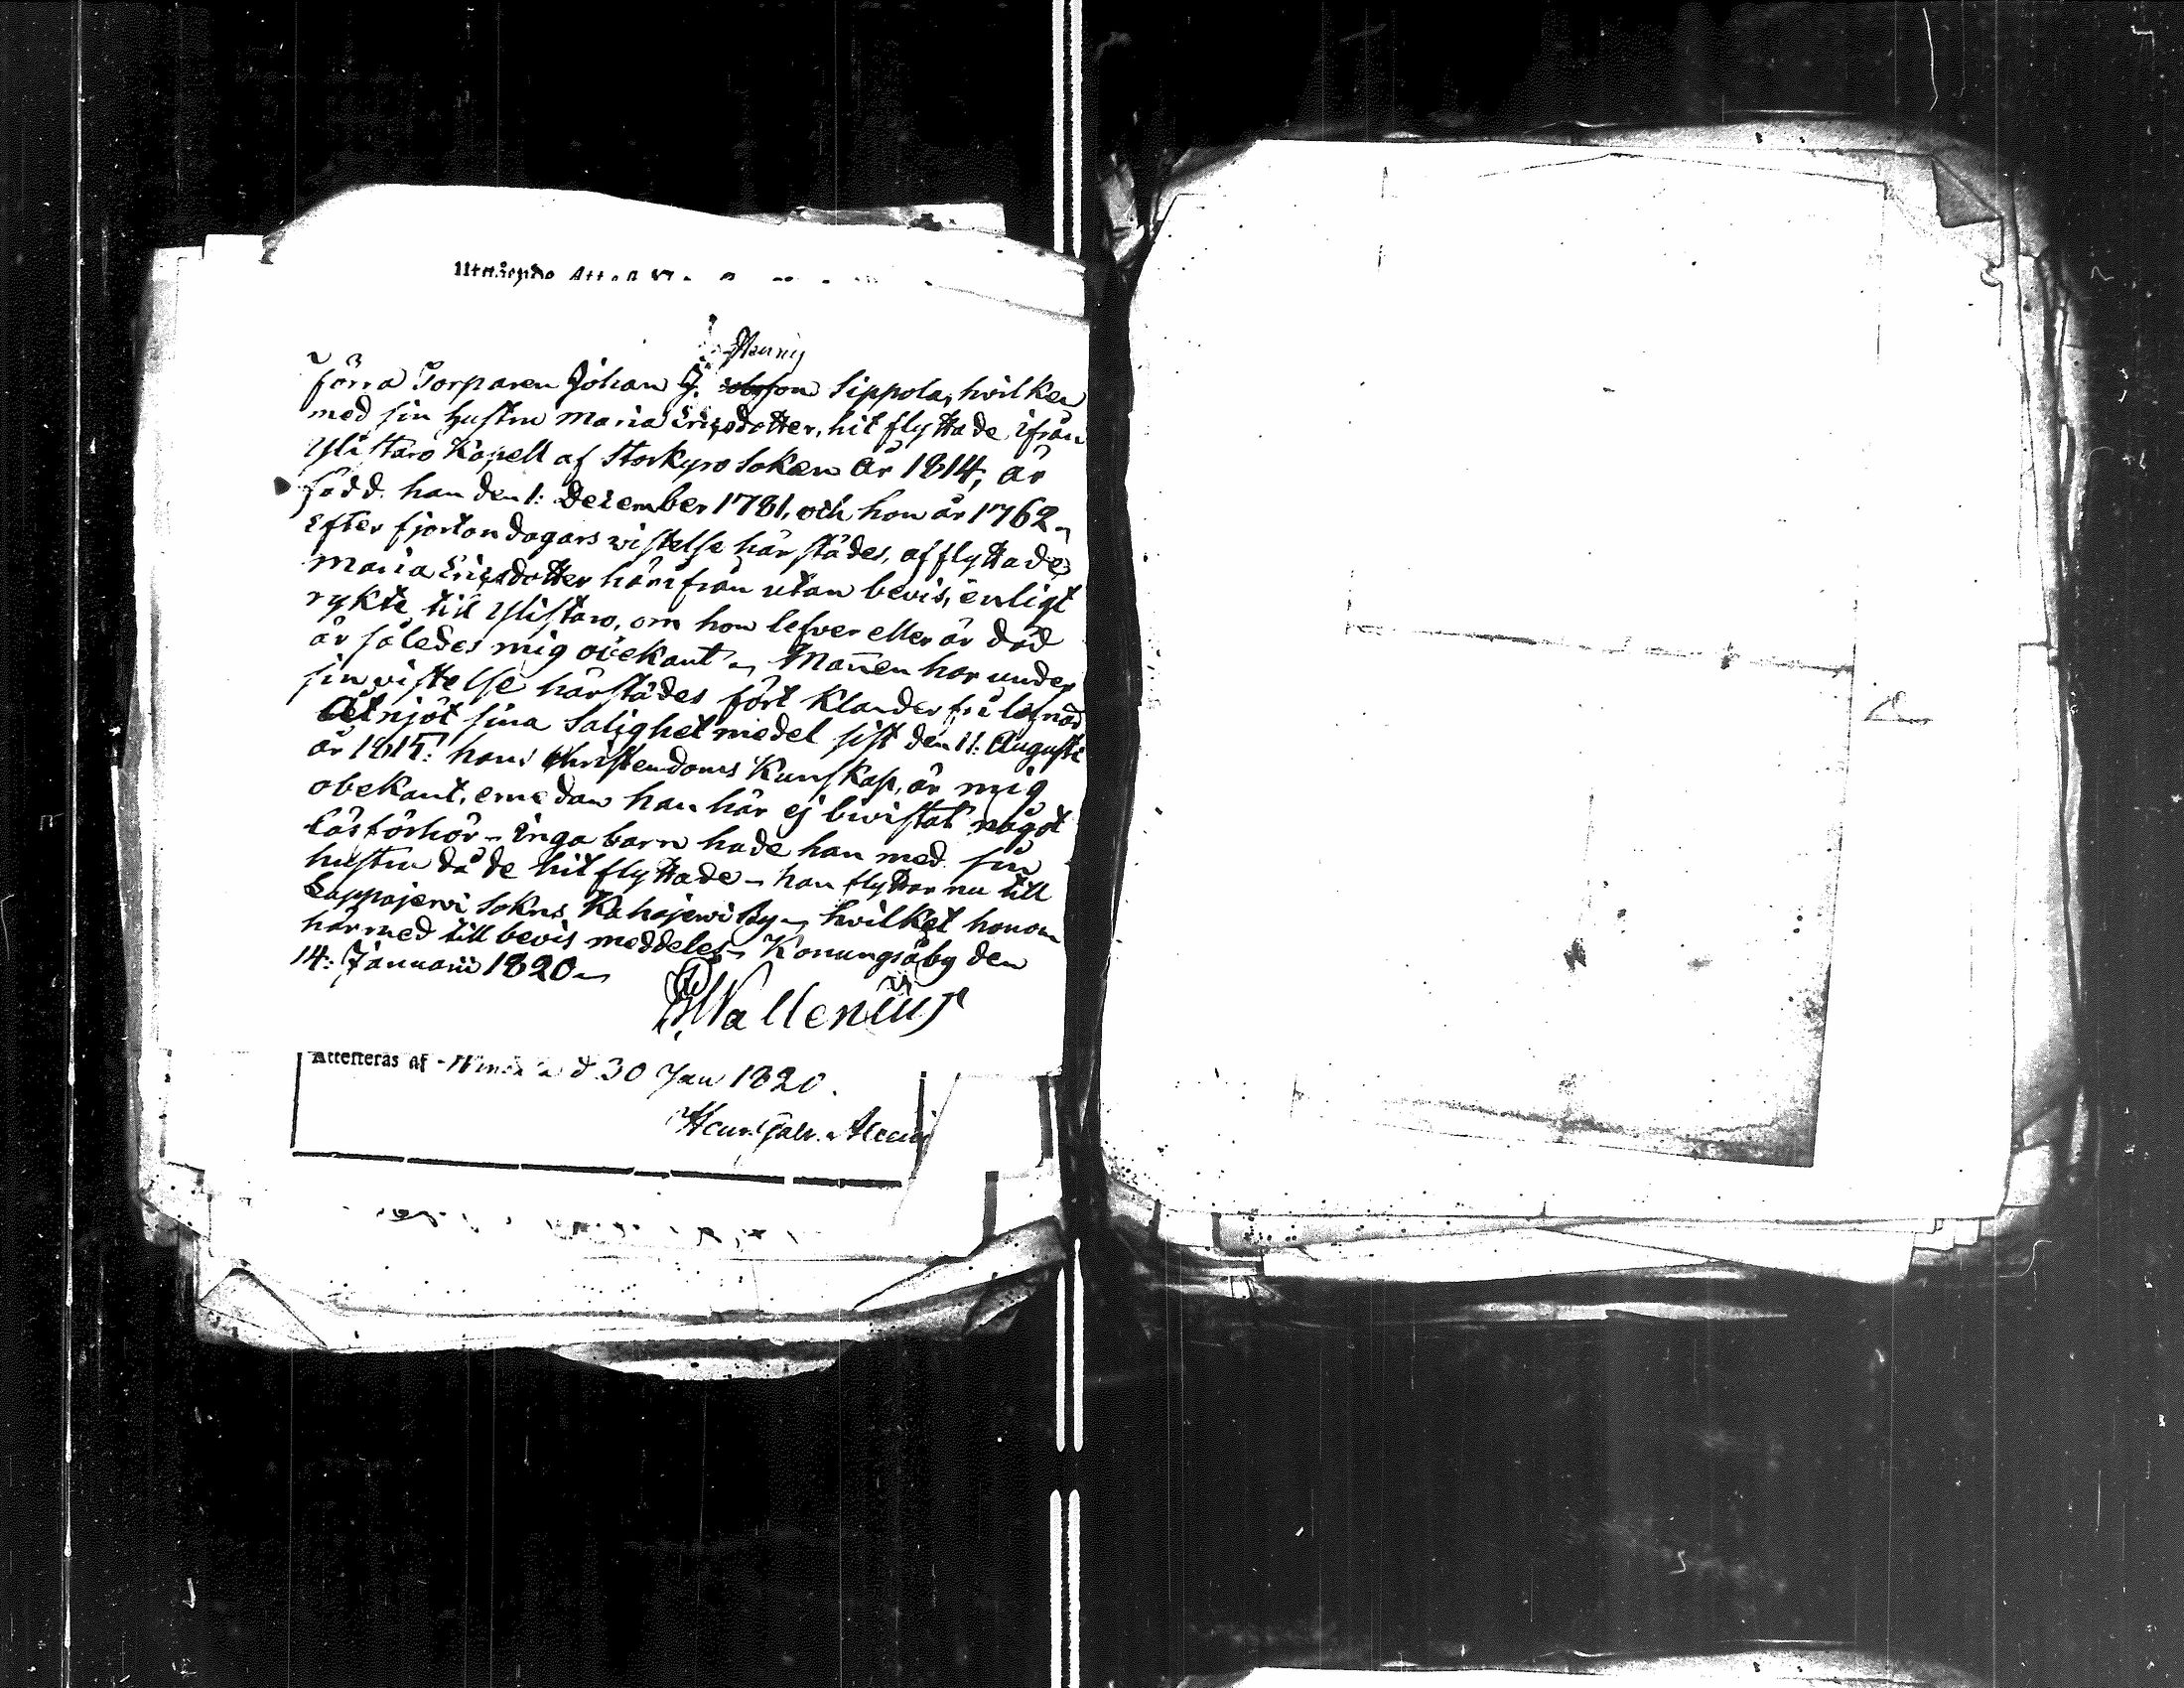 förra Torparen Johan J. Sippola, hvilken
med sin hustru Maria Ericsdotter, hit flyttade ifrån
Ylistaro Kapell af Storkyro Soken år 1814, är
född han den 1: December 1781, och hon år 1762 ~
Efter fjorton dagars wistelse härstädes, afflyttade
Maria Ericsdotter härifrån utan bevis, enligt
rykte till Ylistaro, om hon lefver eller är död
är således mig obekant ~ Mannen har under
sin vistelse härstädes fört klanderfri lefnad
Åtnjöt sina Salighet medel sist den 11: Augusti
år 1815: hans Christendoms Kunskap, är mig
obekant, emedan han här ej bevistat något
läsförhör – Inga barn hade han med sin
hustru då de hitflyttade – han flyttar nu till
Lappajervi Sokns Kahajervi By ~ hvilket honom
härmed till bevis meddeles – Konungsåby den
14: Januarii 1820 ~
Wallenius
Attesteras af d. 30 Jan 1820.